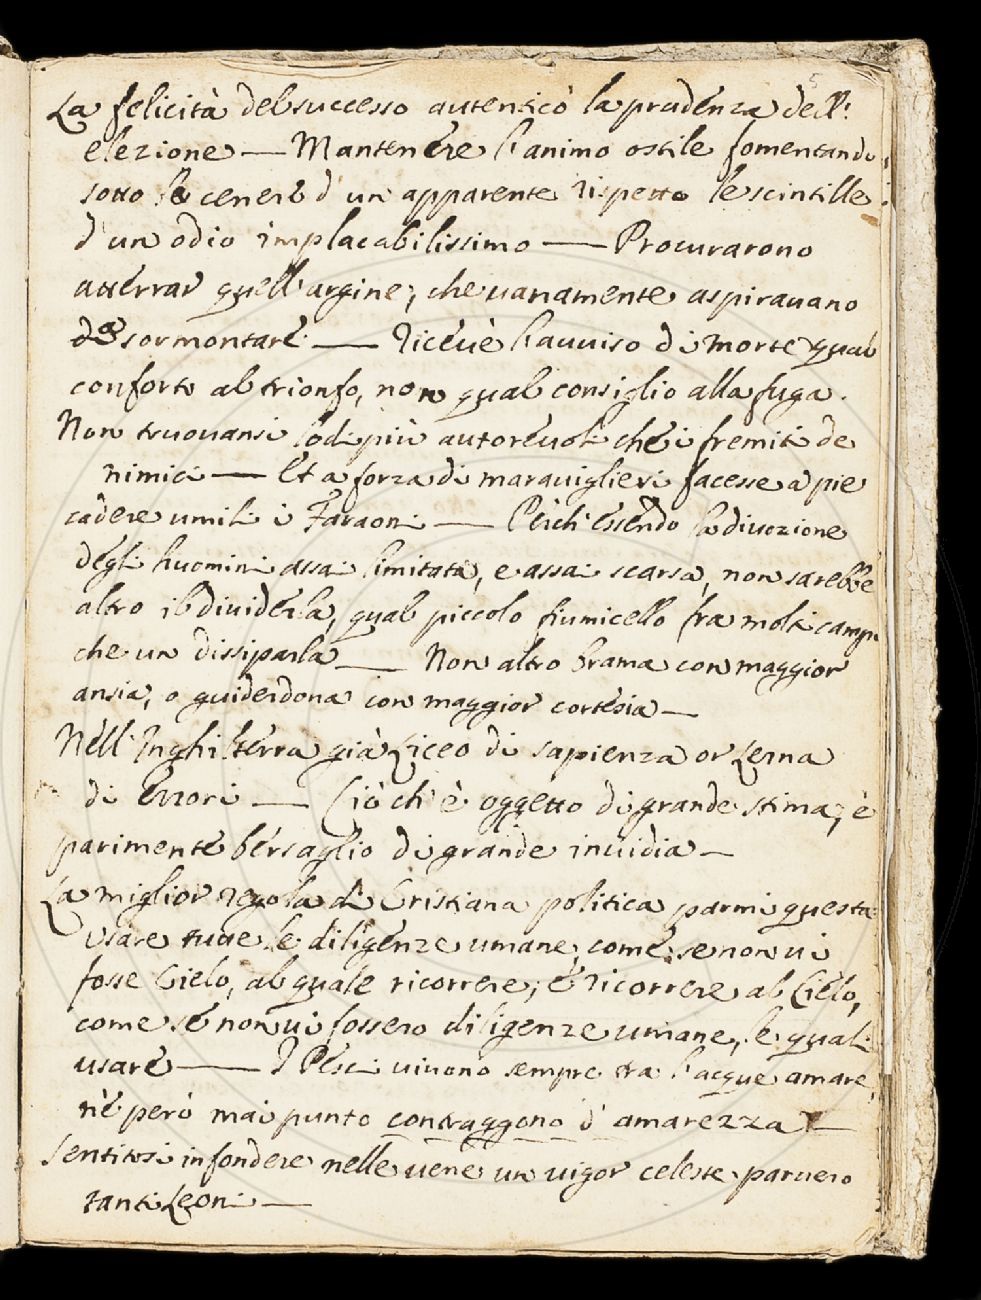 5
La felicità del successo autenticò la prudenza dell'
elezione — Mantenere l'animo ostile fomentando
sotto le cenere d'un apparente rispetto le scintille
d'un odio implacabilissimo — Procurarono
atterrar quell'argine, che vanamente aspiravano
sormontare — Riceuè l'auuiso di morte qual
conforto al trionfo, non qual consiglio alla fuga.
Non truouansi lodi più autoreuoli che i fremiti de
nimici — Et a forza di marauiglie facesse a pie
cadere umili i Faraoni — Perch'essendo la diuozione
degli huomini assai limitata, e assai scarsa, non sarebbe
altro il diuiderla, qual piccolo fiumicello fra molti campi
che un dissiparla — Non altro brama con maggior
ansia, o guiderdona con maggior cortesia —
Nell'Inghilterra già Liceo di sapienza or Lerna
di Errori — Ciò ch'è oggetto di grande stima, è
parimente bersaglio di grande inuidia —
La miglior regola di Cristiana politica parmi questa:
Usare tutte le diligenze umane, come se non ui
fosse Cielo, al quale ricorrere; e ricorrere al Cielo,
come se non ui fossero diligenze umane, le quali
usare — I Pesci uiuono sempre tra l'acque amare,
nè però mai punto contraggono d'amarezza —
Sentitosi infondere nelle uene un uigor celeste paruero
tanti Leoni —